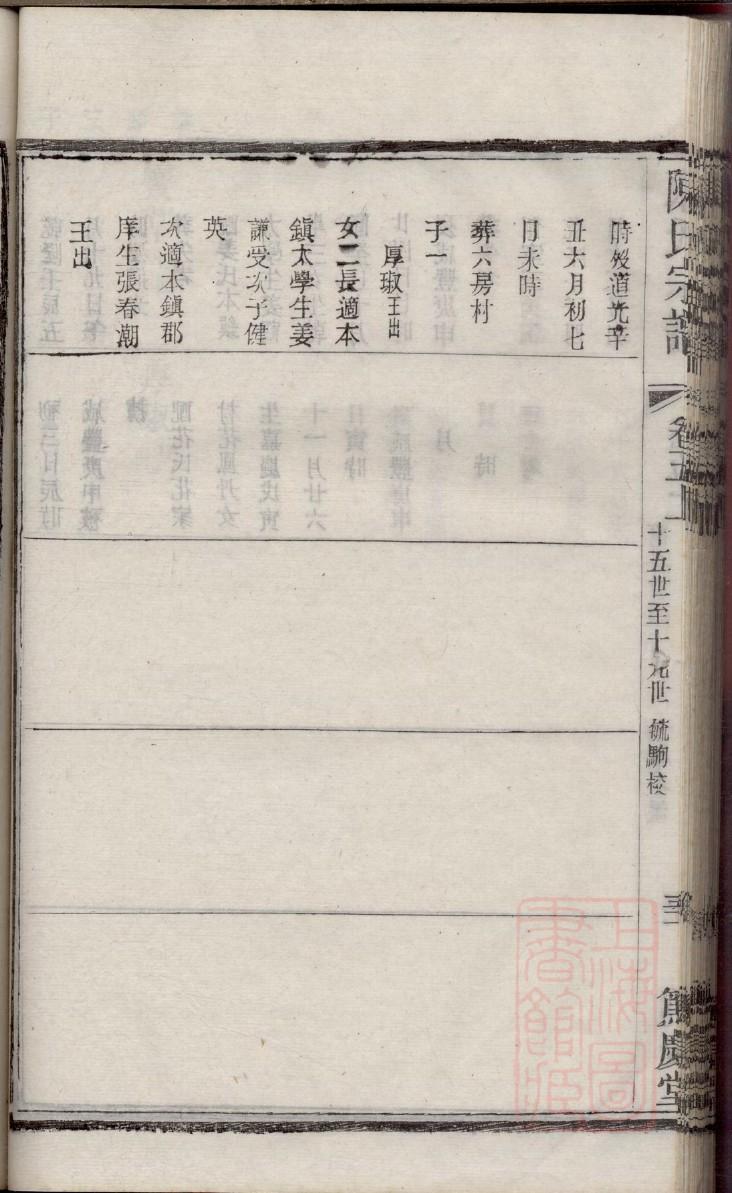 陳氏宗譜
卷五上
十五世至十九世 毓駒校
篤慶堂
時歿道光辛
丑六月初七
日未時
葬六房村
子一
厚琡王出
女二長適本
鎮太學生姜
謙受次子健
英
次適本鎮郡
庠生張春潮
王出
上海圖書館藏